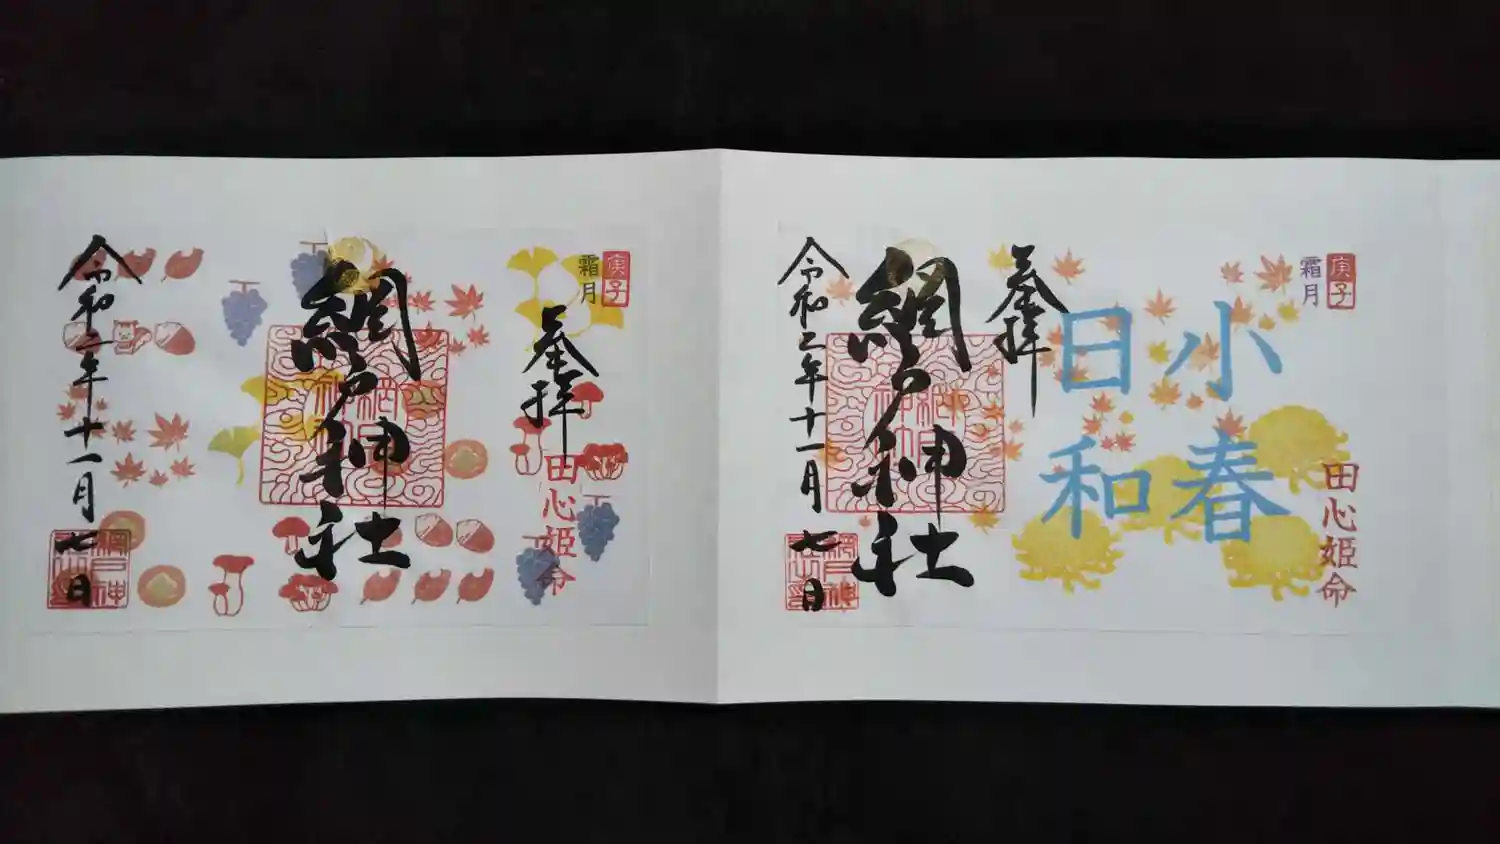 庚子
霜月
小春
日和
田心姫命
奉拝
網戸神社
令和二年十一月七日
網戸神
庚子
霜月
奉拝
田心姫命
網戸神社
令和二年十一月七日
網戸神